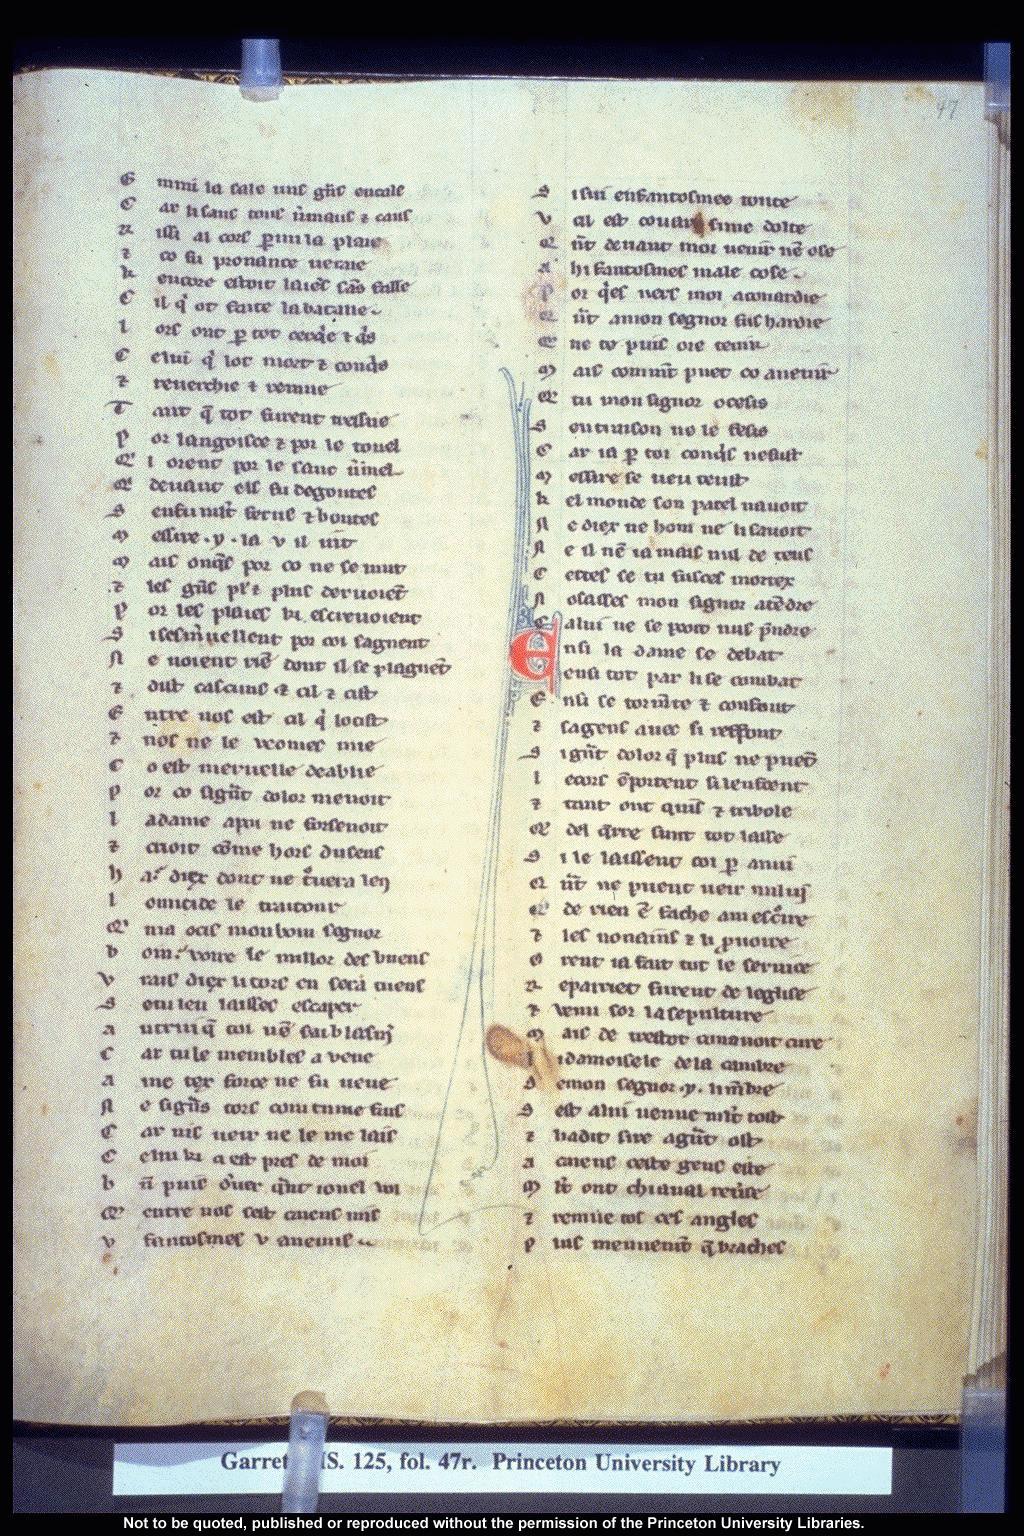 47
E nmi la sale uns gñs encale
C ar li sans tous ũmaus ⁊ caus
R issi al cors ꝑmi la plaie
⁊ co fu prouance ueraie
K encore estoit laiens sãs falle
C il q̉ ot faite la bataille
L ors ont ꝑ tot cerq̉e ⁊ q̉s
C elui q̉ lot mort ⁊ conq̉s
⁊ reuerchie ⁊ remue
T ant q̃ tot furent tressue
P or langoisse ⁊ por le touel
Q i orent por le sanc ũmel
Q deuant els fu degoutes
S enfu mlt̃ ferus ⁊ boutes
M essire .y. la v il iut
M ais onq̉s por co ne se mut
⁊ les gñs pl⁊ ⁊ plus deruoiẽt
P or les plaies ki escreuoient
S i sesm̃uellent por coi sagnent
N e uoient riẽ dont il se plagnẽt
⁊ dist cascuns ⁊ cil ⁊ cist
E ntre nos est cil q̉ locist
⁊ nos ne le veomes mie
C o est meruelle deablie
P or co sigñt dolor menoit
L a dame apoi ne forsenoit
⁊ crioit cõme hors du sens
H a! diex dont ne t̉uera len
L oumicide le traitour
Q ma ocis mon bon segnor
B on. voire le millor des buens
V rais diex li tors en sera tuens
S ensi len laisses escaper
A utrui q̃ toi nẽ sai blasm̃
C ar tu le membles a veue
A inc tex force ne fu ueue
N e si gñs tors com tu me fais
C ar nis ueir ne le me lais
C elui ki a est pres de moi
B ñ puis d̉ire q̃nt ionel uoi
Q entre nos soit caiens mis
V fantosmes v anemis
S i sui enfantosmee toute
V al est couars si me dolte
Q ũt deuant moi uenir nẽ ose
A hi fantosmes male cose
P or q̉es uers moi acouardie
Q ũt a mon segnor fus hardie
Q ne te puis ore tenir
M ais comm̃t puet co auenir
Q tu mon signor oceſis
S entraison ne le fesis
C ar ia ꝑ toi conq̉s ne fust
M essire se ueu teust
K el monde son parel nauoit
N e diex ne hom ne li sauoit
N e il nẽ ia mais nul de teus
C ertes se tu fusses mortex
N osasses mon signor atẽdre
C a lui ne se pooit nus p̃ndre
E nsi la dame se debat
E ensi tot par li se combat
E nsi se torm̃te ⁊ confont
⁊ sa gens auec si reffont
S i gñt dolor q̃ plus ne pueẽt
L e cors ẽportent si lenfoent
⁊ tant ont quis ⁊ tribole
Q del q̃rre sunt tot lasse
S i le laissent coi ꝑ anui
Q ũt ne puent ueir nului
Q de rien ẽ sache a mescroire
⁊ les nonains ⁊ li prouoire
O rent ia fait tot le seruice
R epairiet furent de leglise
⁊ venu sor la sepulture
M ais de trestot cunauoit cure
L i damoisele de la cambre
D e mon segnor .y. li m̃bre
S est a lui uenue mlt̃ tost
⁊ li adit sire a gũt ost
A caiens ceste gens este
M lt̃ ont chi aual tempeste
⁊ remue tos ces angles
P lus menuem̃t q̃ brachés
Garrett MS. 125, fol. 47r. Princeton University Library
Not to be quoted, published or reproduced without the permission of the Princeton University Libraries.